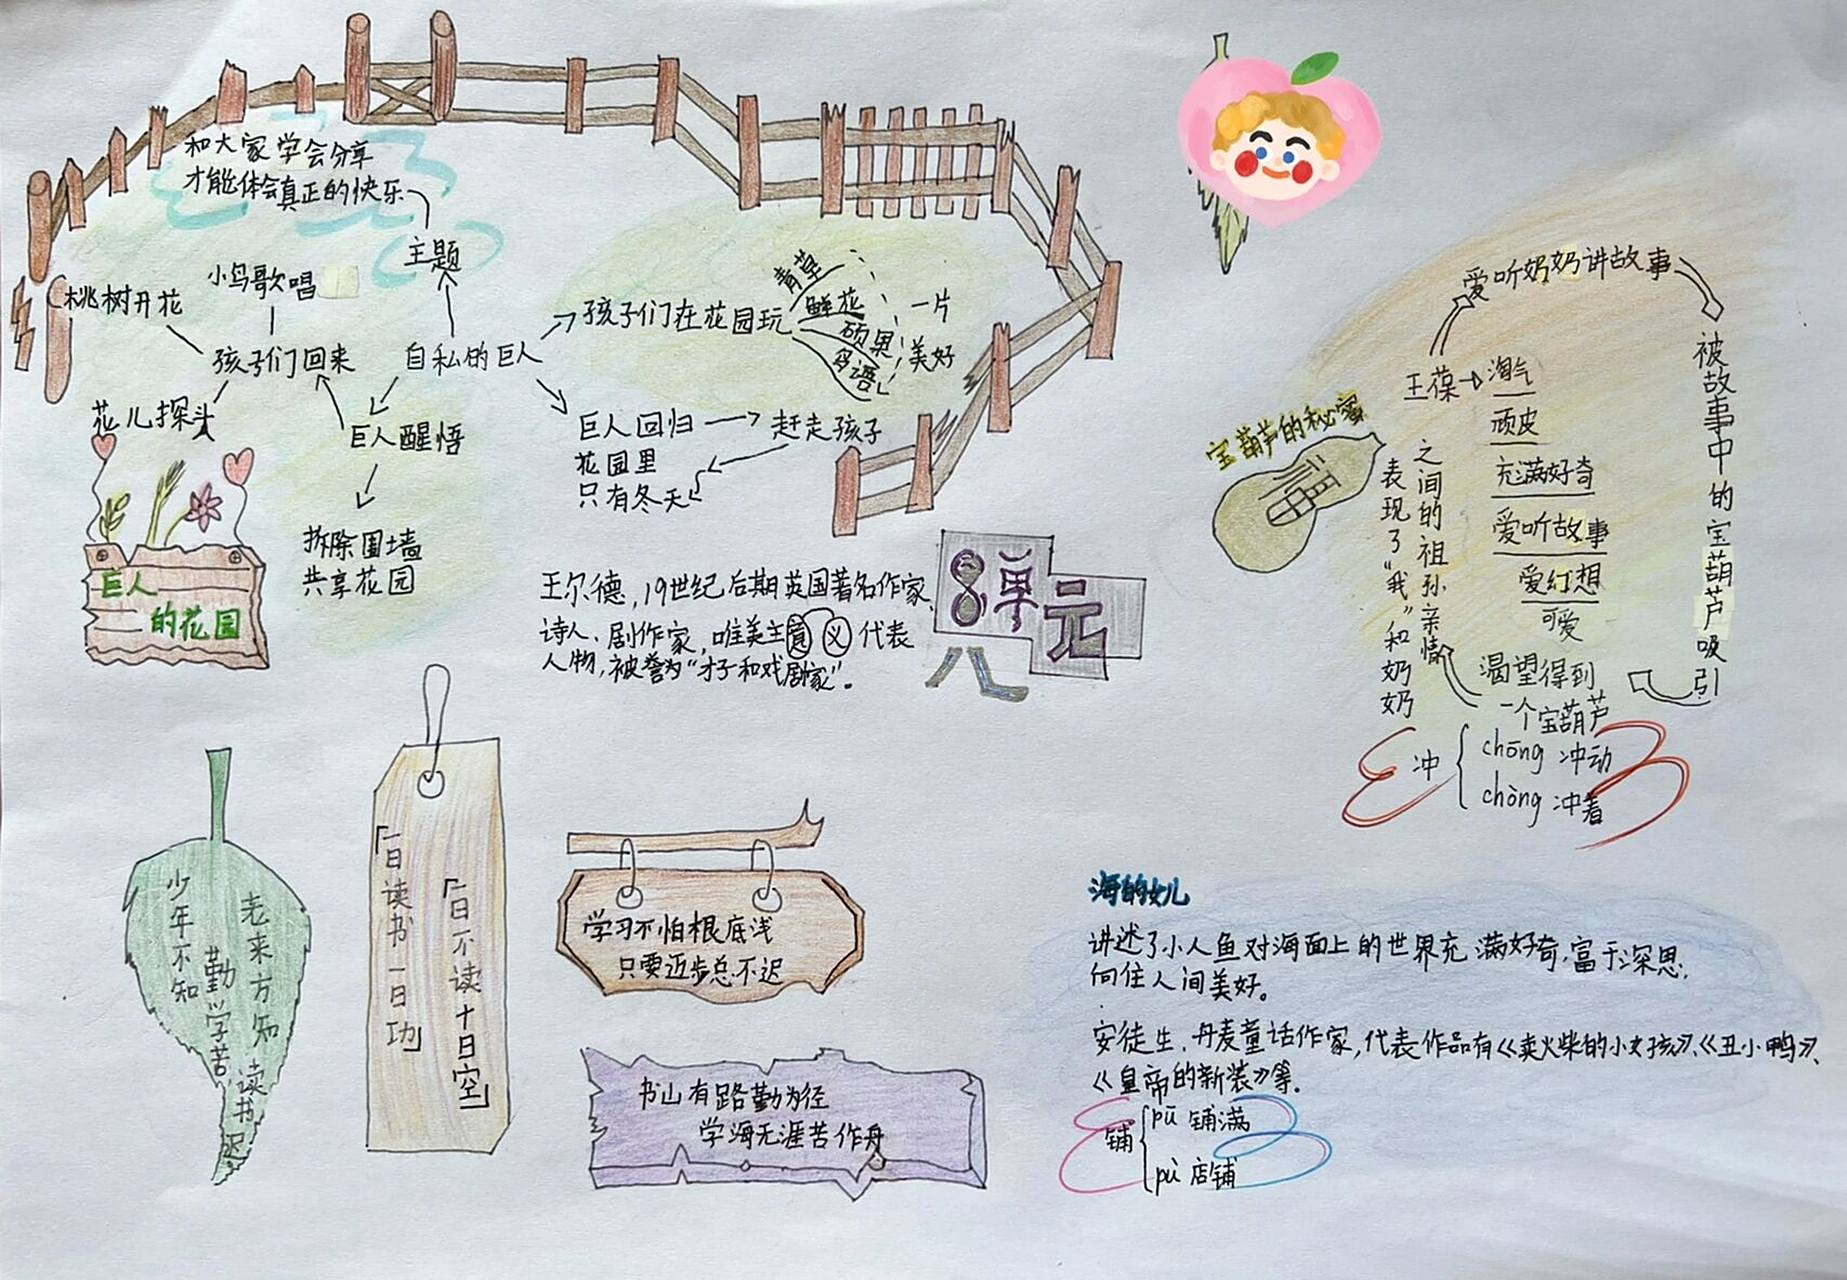 和大家学会分享
才能体会真正的快乐
主题
小鸟歌唱
桃树开花
孩子们回来
花儿探头
自私的巨人
巨人醒悟
拆除围墙
共享花园
孩子们在花园玩
青草
鲜花
硕果
多语
一片
美好
巨人回归
赶走孩子
花园里
只有冬天
巨人
的花园
王尔德,19世纪后期英国著名作家、
诗人、剧作家,唯美主意义代表
人物,被誉为“才子和戏剧家”。
8单元
八
宝葫芦的秘密
福
爱听奶奶讲故事
被故事中的宝葫芦吸引
渴望得到
一个宝葫芦
王葆
淘气
顽皮
充满好奇
爱听故事
爱幻想
可爱
表现了“我”和奶奶
之间的祖孙亲情
冲
chōng 冲动
chòng 冲着
少年不知
勤学苦
老来方知
读书迟
「一日读书一日功」
「一日不读十日空」
学习不怕根底浅
只要迈步总不迟
书山有路勤为径
学海无涯苦作舟
海的女儿
讲述了小人鱼对海面上的世界充满好奇,富于深思,
向往人间美好。
安徒生,丹麦童话作家,代表作品有《卖火柴的小女孩》、《丑小鸭》、
《皇帝的新装》等.
铺
pū 铺满
pù 店铺